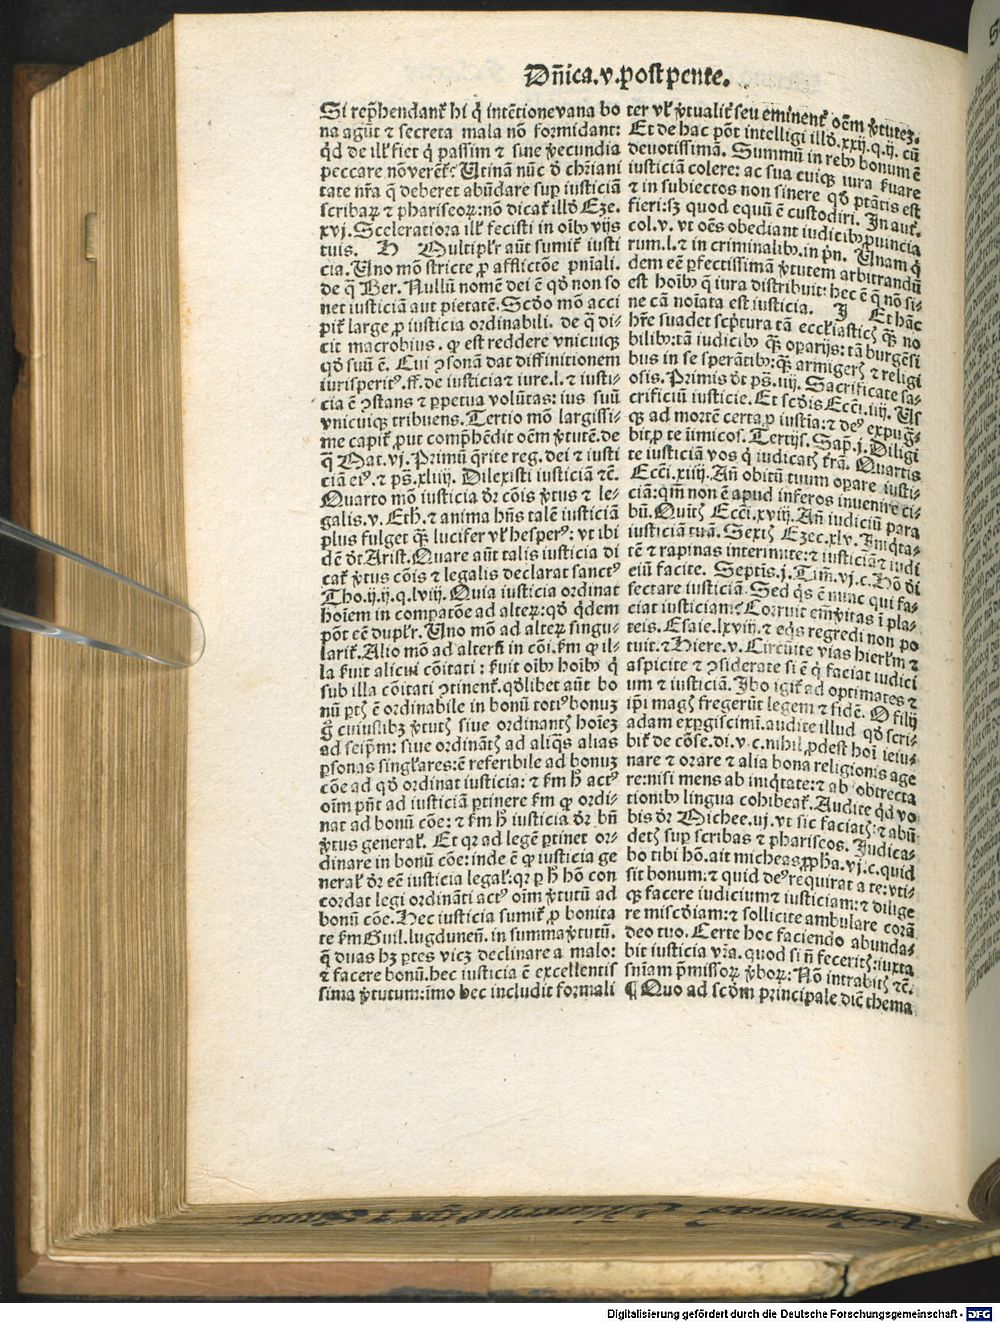 Dñica.v.post pente.
Si rep̃hendant̃ hi q̃ intẽtione vana bo
na agũt ⁊ secreta mala nõ formidant:
q̃d de ill̃ fiet q̃ passim ⁊ sine v̾ecundia
peccare nõ verẽt̃? Utinã nũc õ chr̃iani
tate nr̃a q̃ deberet abũdare sup iusticiã
scribaꝝ ⁊ phariseoꝝ: nõ dicat̃ illd̾ Eze.
xvj. Sceleratiora ill̃ fecisti in oĩbꝰ vijs
tuis. H Multipl̾r aũt sumit̃ iusti
cia. Uno mõ stricte ꝓ afflictõe pniali.
de q̃ Ber. Nullũ nomẽ dei ẽ qd̾ non so
net iusticiã aut pietatẽ. Scd̾o mõ acci
pit̃ large ꝓ iusticia ordinabili. de q̃ di-
cit macrobius. ꝙ est reddere vnicuiqꝫ
qd̾ suũ ẽ. Cui ꝯsonã dat diffinitionem
iurisperitꝰ. ff. de iusticia ⁊ iure. l. ⁊ iusti-
cia ẽ ꝯstans ⁊ ꝑpetua volũtas: ius suũ
vnicuiqꝫ tribuens. Tertio mõ largissi-
me capit̃ ꝓut comp̃hẽdit oẽm v̾tutẽ. de
q̃ Mat. vj. Primũ q̃rite reg. dei ⁊ iusti
ciã eiꝰ. ⁊ ps̃. xliiij. Dilexisti iusticiã ⁊c̃.
Quarto mõ iusticia dr̃ cõis v̾tus ⁊ le-
galis. v. Eth. ⁊ anima hñs talẽ iusticiã
plus fulget qꝫ̃ lucifer vl̾ hesperꝰ: vt ibi
dẽ dt̃ Arist. Quare aũt talis iusticia di
cat̃ v̾tus cõis ⁊ legalis declarat sanctꝰ
Tho. ij. ij. q. lviij. Quia iusticia ordinat
hoĩem in compatõe ad alteꝝ: qd̾ q̃dem
põt eẽ dupl̾r. Uno mõ ad alteꝝ singu-
larit̃. Alio mõ ad alterũ in cõi. f̾m ꝙ il-
la s̾uit alicui cõitati: s̾uit oĩbꝰ hoĩbꝰ q̃
sub illa cõitati ꝯtinent̃. qd̾libet aũt bo
nũ ptꝭ ẽ ordinabile in bonũ totiꝰ bonuꝫ
g̃ cuiuslibꝫ v̾tutꝭ siue ordinantꝭ hoĩeꝫ
ad seip̃m: siue ordinãtꝭ ad aliq̃s alias
ꝑsonas singl̾ares: ẽ referibile ad bonuꝫ
cõe ad qd̾ ordinat iusticia: ⁊ f̾m h̾ actꝰ
oĩm pñt ad iusticiã ꝑtinere f̾m ꝙ ordi-
nat ad bonũ cõe: ⁊ f̾m h̾ iusticia dr̃ bñ
v̾tus general̾. Et qꝛ ad legẽ ꝑtinet or-
dinare in bonũ cõe: inde ẽ ꝙ iusticia ge
neral̾ dr̃ eẽ iusticia legal̾: qꝛ ꝑ h̾ hõ con
cordat legi ordinãti actꝰ oĩm v̾tutũ ad
bonũ cõe. Hec iusticia sumit̃ ꝓ bonita
te f̾m Guil. lugduneñ. in summa v̾tutũ.
q̃ duas hꝫ ꝑtes vicꝫ declinare a malo:
⁊ facere bonũ. hec iusticia ẽ excellentis
sima v̾tutum: imo hec includit formali
ter vl̾ v̾tualit̃ seu eminent̃ oẽm v̾tuteꝫ.
Et de hac põt intelligi illd̾. xxij. q. ij. cũ
deuotissimã. Summũ in rebꝰ bonum ẽ
iusticiã colere: ac sua cuiqꝫ iura s̾uare
⁊ in subiectos non sinere qd̾ ptãtis est
fieri: sꝫ quod equũ ẽ custodiri. In aut̃.
col. v. vt oẽs obediant iudicibꝰ ꝓuincia
rum. l. ⁊ in criminalibꝰ. in pñ. Unam q̃
dem eẽ ꝑfectissimã v̾tutem arbitrandũ
est hoĩbꝰ q̃ iura distribuit: hec ẽ q̃ nõ si-
ne cã noĩata est iusticia. J Et hãc
hr̃e suadet scp̃tura tã eccl̾iasticꝭ qꝫ̃ no
bilibꝰ: tã iudicibꝰ qꝫ̃ oparijs: tã burgẽsi
bus in se sperãtibꝰ: qꝫ̃ armigerꝭ ⁊ religi
osis. Primis dt̃ ps̃. iiij. Sacrificate sa-
crificiũ iusticie. Et scd̾is Ecci. iiij. Us
qꝫ ad mortẽ certa ꝓ iustia: ⁊ deꝰ expug-
bit ꝓ te ĩimicos. Tertijs. Sap. j. Diligi
te iusticiã vos q̃ iudicatꝭ t̾rã. Quartis
Ecci. xiiij. Añ obitũ tuum opare iusti-
ciã: qm̃ non ẽ apud inferos inuenire ci-
bũ. Quitꝭ Ecci. xviij. Añ iudiciũ para
iusticiã tuã. Sextꝭ Ezec. xlv. Iniq̃ta-
tẽ ⁊ rapinas interimite: ⁊ iusticiã ⁊ iudi
ciũ facite. Septis. j. Tim̃. vj. c. Hõ di
sectare iusticiã. Sed q̃s ẽ nunc qui fa-
ciat iusticiam? Corruit em̃ v̾itas ĩ pla-
teis. Esaie. lxviij. ⁊ eq̃s regredi non po
tuit. ⁊ Hiere. v. Circũite vias hierl̾m ⁊
aspicite ⁊ ꝯsiderate si ẽ q̃ faciat iudici
um ⁊ iusticiã. Ibo igit̃ ad optimates ⁊
ip̃i magꝭ fregerũt legem ⁊ fidẽ. O filij
adam exꝑgiscimĩ. audite illud qd̾ scri-
bit̃ de cõse. di. v. c. nihil ꝓdest hoĩ ieiu-
nare ⁊ orare ⁊ alia bona religionis age
re: nisi mens ab iniq̃tate: ⁊ ab obtrecta
tionibꝰ lingua cohibeat̃. Audite q̃d vo
bis dr̃ Michee. vj. vt sic faciatꝭ: ⁊ abũ
detꝭ sup scribas ⁊ phariseos. Iudica-
bo tibi hõ. ait micheas ꝓpha. vj. c. quid
sit bonum: ⁊ quid deꝰ requirat a te: vti-
qꝫ facere iudicium ⁊ iusticiam: ⁊ dilige
re miscd̾iam: ⁊ sollicite ambulare corã
deo tuo. Certe hoc faciendo abunda-
bit iusticia vr̃a. quod si ñ feceritꝭ: iuxta
sniam p̃missoꝝ v̾boꝝ: Nõ intrabitꝭ ⁊c̃.
¶ Quo ad scd̾m principale dic̃ thema
Digitalisierung gefördert durch die Deutsche Forschungsgemeinschaft - DFG